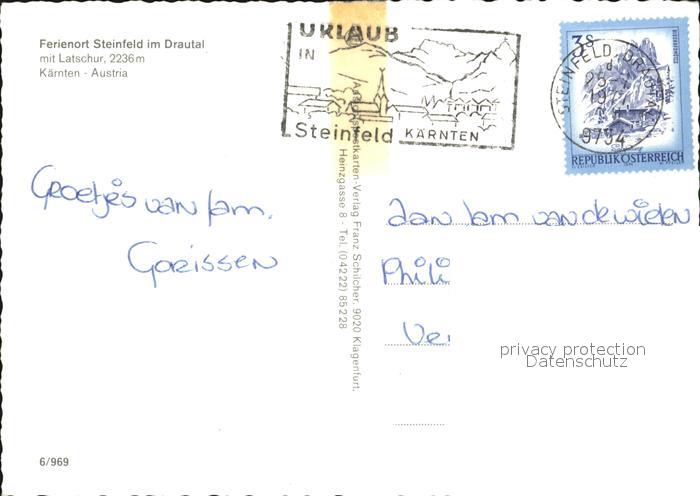 Ferienort Steinfeld im Drautal
mit Latschur, 2236m
Kärnten - Austria
URLAUB
IN
Steinfeld KÄRNTEN
3s
STEINFELD, DRAUTAL
9754
REPUBLIK ÖSTERREICH
Groetjes van fam.
Gorissen
Ansichtskarten-Verlag Franz Schilcher, 9020 Klagenfurt,
Heinzgasse 8 - Tel. (04222) 85228
Aan fam van de wielen
Phili
Ve
privacy protection
Datenschutz
6/969